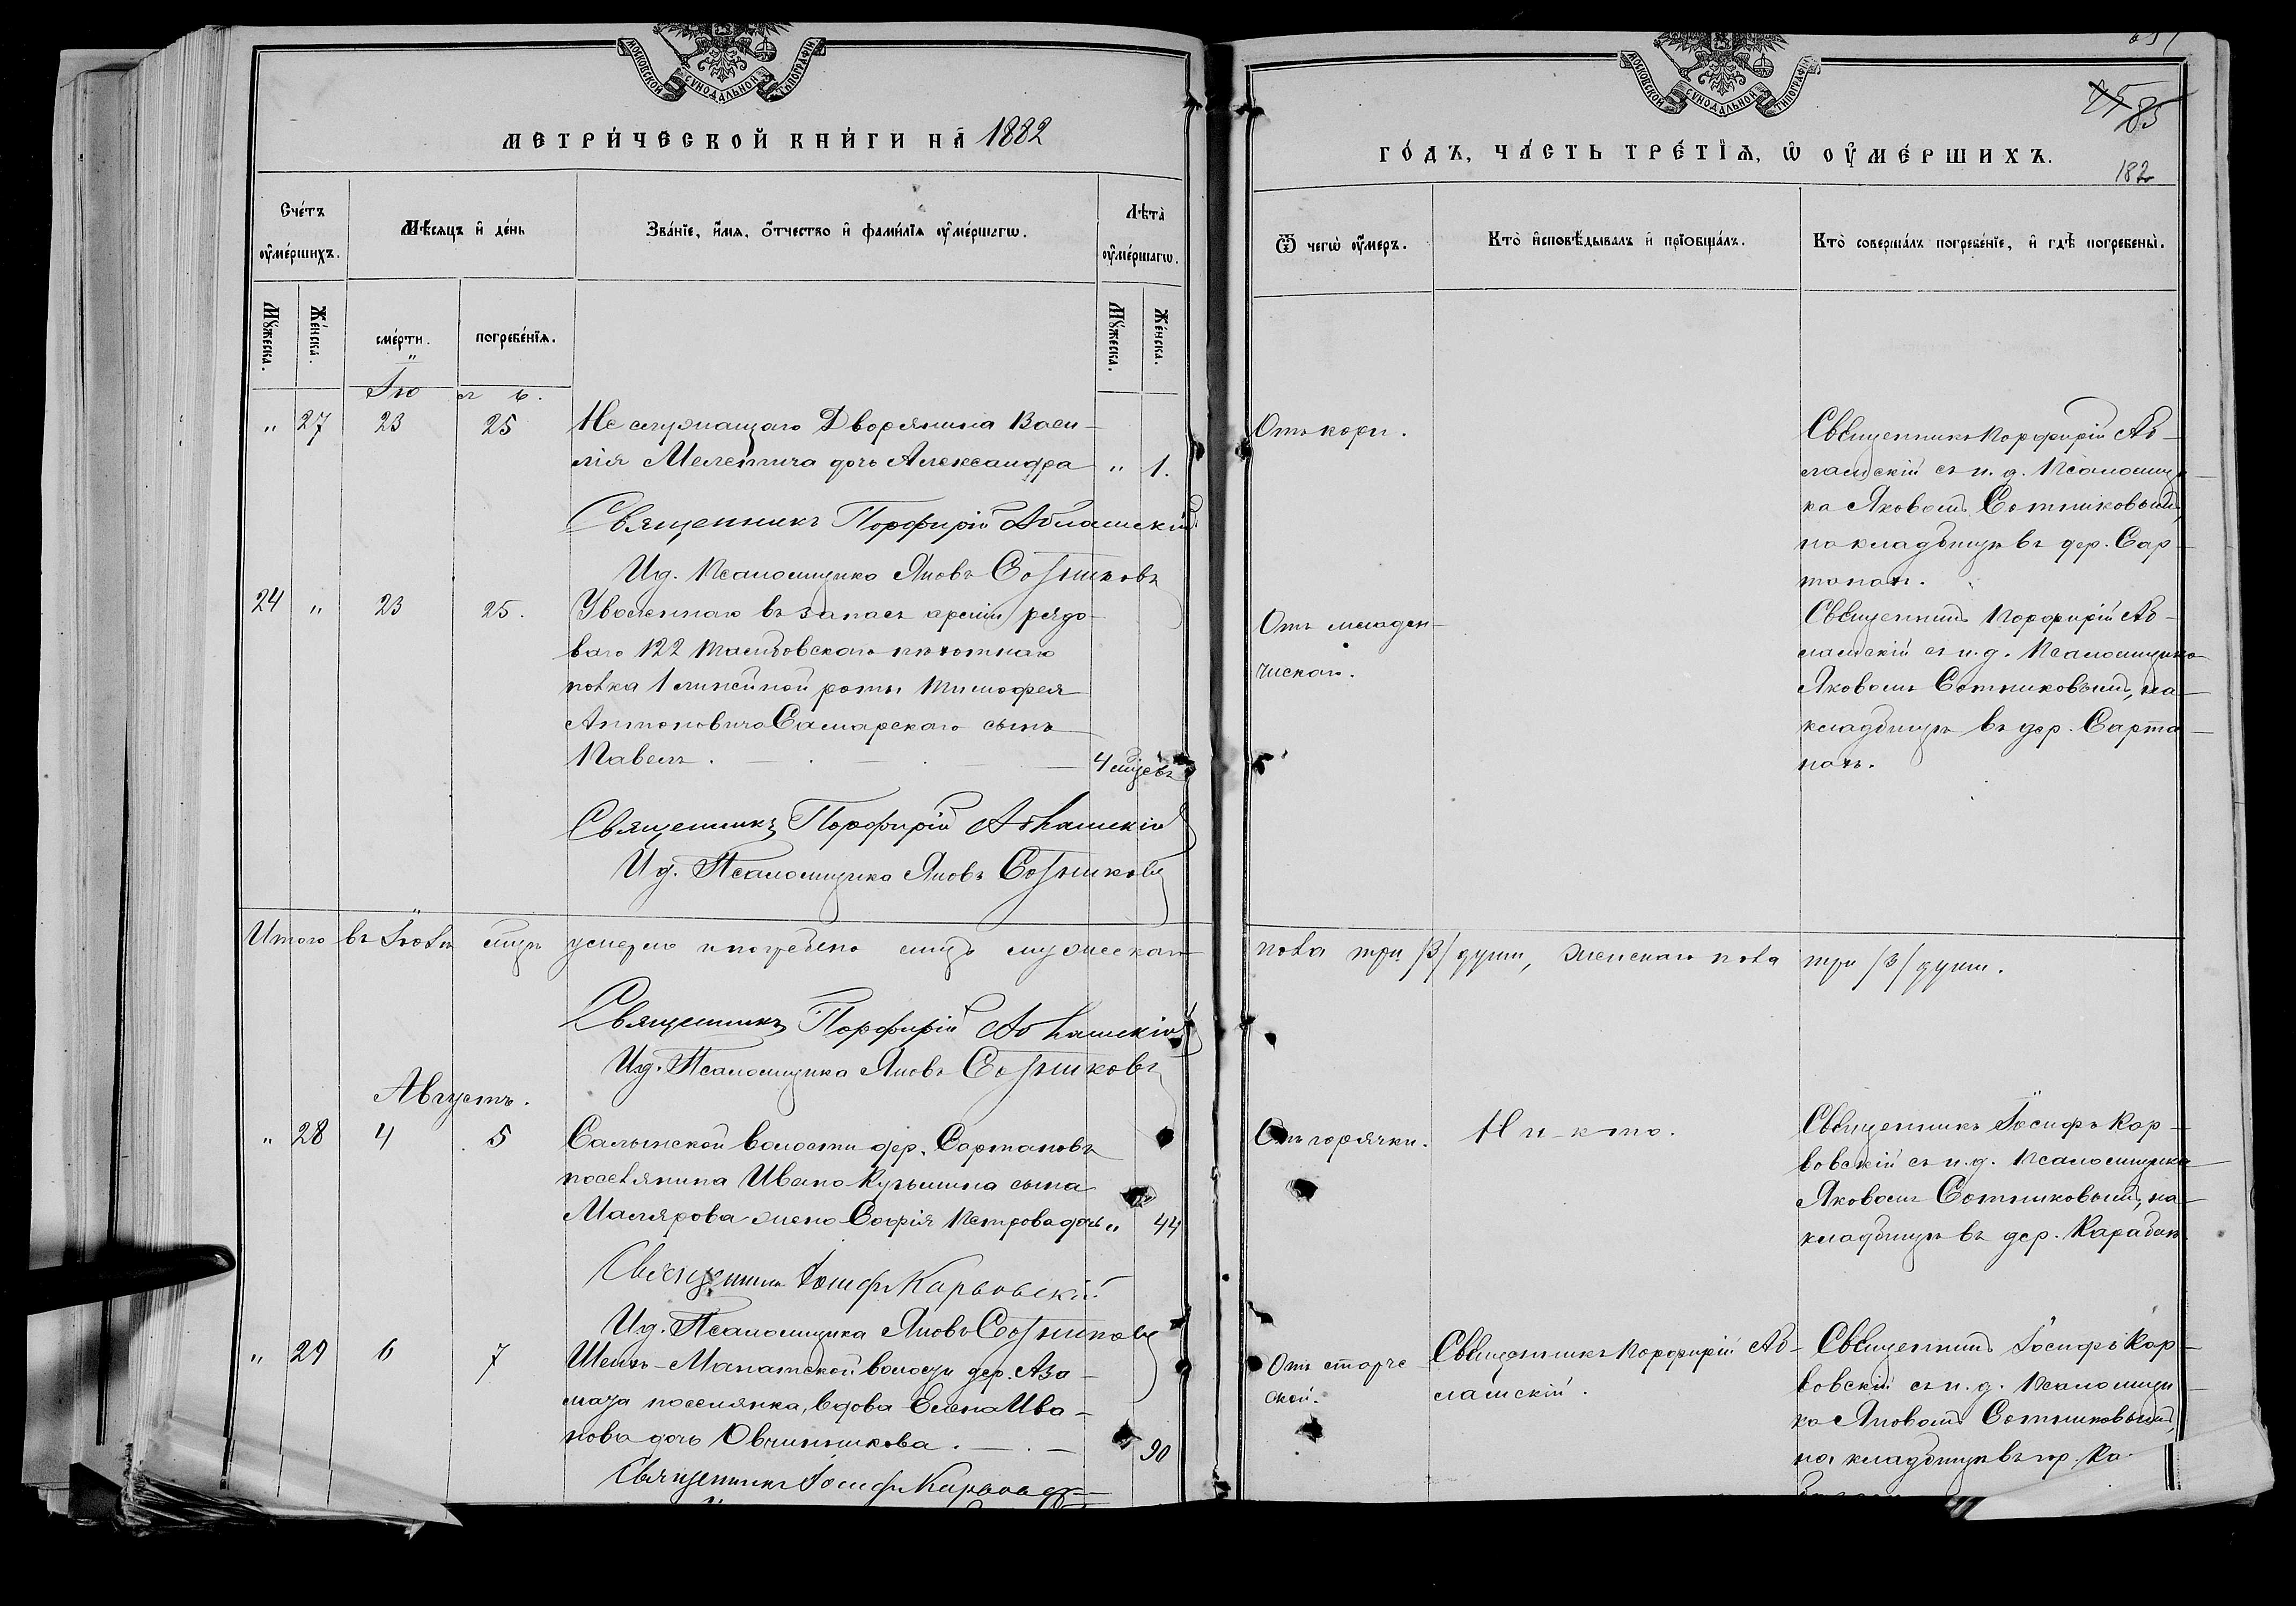 МОСКОВСКОЙ СѴНОДАЛЬНОЙ ТИПОГРАФІИ
МЕТРИ́ЧЕСКОЙ КНИ́ГИ НА̀ 1882
Сче́тъ оу҆ме́ршихъ.
Мѣ́сяцъ и҆ де́нь
Зва́нїе, и҆́мя, ѻ҆́тчество и҆ фами́лїя оу҆ме́ршагѡ.
Лѣ́та̀ оу҆ме́ршагѡ.
Мꙋ́жеска.
Же́нска.
сме́рти.
погребе́нїя.
Мꙋ́жеска.
Же́нска.
Іюль.
" 27 23 25 Не служащаго Дворянина Васи-
лія Мелентича дочь Александра " 1.
Священникъ Порфирій Абламскій
Ид. Псаломщика Яковъ Сотниковъ
24 " 23 25. Уволеннаго въ запасъ арміи рядо-
ваго 122 Тамбовскаго пѣхотнаго
полка 1 линейной роты Тимофея
Антоновича Самарскаго сынъ
Павелъ. 4 мѣсцевъ
Священникъ Порфирій Абламскій
Ид. Псаломщика Яковъ Сотниковъ
Итого въ Іюлѣ мцѣ умерло и погребено лицъ мужескаго
Священникъ Порфирій Абламскій
Ид. Псаломщика Яковъ Сотниковъ
Августъ.
" 28 4 5 Салынской волости дер. Сартановъ
поселянина Ивана Кузьмина сына
Малярова жена Софія Петрова дочь " 44
Священникъ Іосифъ Карповскій
Ид. Псаломщика Яковъ Сотниковъ
" 29 6 7 Шейхъ-Манатской волости дер. Аза-
мата поселянка, вдова Елена Ива-
нова дочь Овчинникова. " 90
Священникъ Іосифъ
МОСКОВСКОЙ СѴНОДАЛЬНОЙ ТИПОГРАФІИ
85
182
ГО́ДЪ, ЧА́СТЬ ТРЕ́ТЇѦ, Ѡ҆ ОУ҆МЕ́РШИХЪ.
Ѿ чегѡ̀ оу҆́меръ.
Кто̀ и҆сповѣ́дывалъ и҆ прїобща́лъ.
Кто̀ соверша́лъ погребе́нїе, и҆ гдѣ̀ погребены̀.
Отъ кори.
Священникъ Порфирій Аб-
ламскій съ и. д. Псаломщи-
ка Яковомъ Сотниковымъ,
на кладбищѣ въ дер. Сар-
танахъ.
Отъ младен-
ческаго.
Священникъ Порфирій Аб-
ламскій съ и. д. Псаломщика
Яковомъ Сотниковымъ, на
кладбищѣ въ дер. Сарта-
нахъ.
пола три /3/ души, женскаго пола три /3/ души.
Отъ горячки.
Ни-кто.
Священникъ Іосифъ Кар-
повскій съ и. д. Псаломщика
Яковомъ Сотниковымъ, на
кладбищѣ въ дер.
Отъ старче
ской.
Священникъ Порфирій Аб-
ламскій.
Священникъ Іосифъ Кар-
повскій съ и. д. Псаломщи-
ка Яковомъ Сотниковымъ,
на кладбищѣ въ